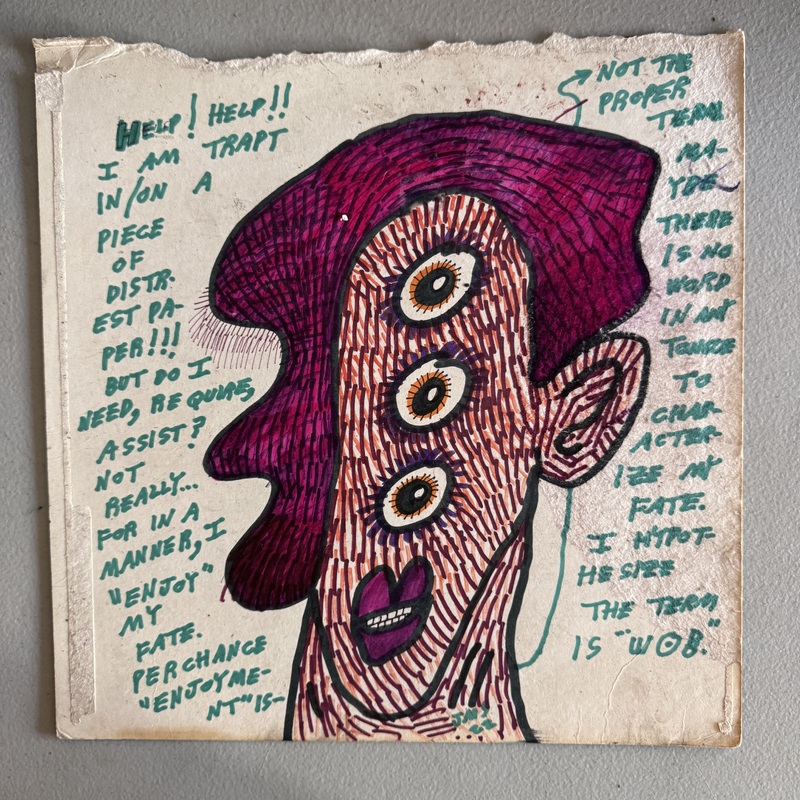 HELP! HELP!!
I AM TRAPT
IN/ON A
PIECE
OF
DISTR-
EST PA-
PER!!!
BUT DO I
NEED, REQUIRE,
ASSIST?
NOT
REALLY...
FOR IN A
MANNER, I
"ENJOY"
MY
FATE.
PERCHANCE
"ENJOYME-
NT" IS-
NOT THE
PROPER
TERM
MA-
YBE
THERE
IS NO
WORD
IN ANY
TONGUE
TO
CHAR-
ACTER-
IZE MY
FATE.
I HYPOT-
HESIZE
THE TERM
IS "WOB."